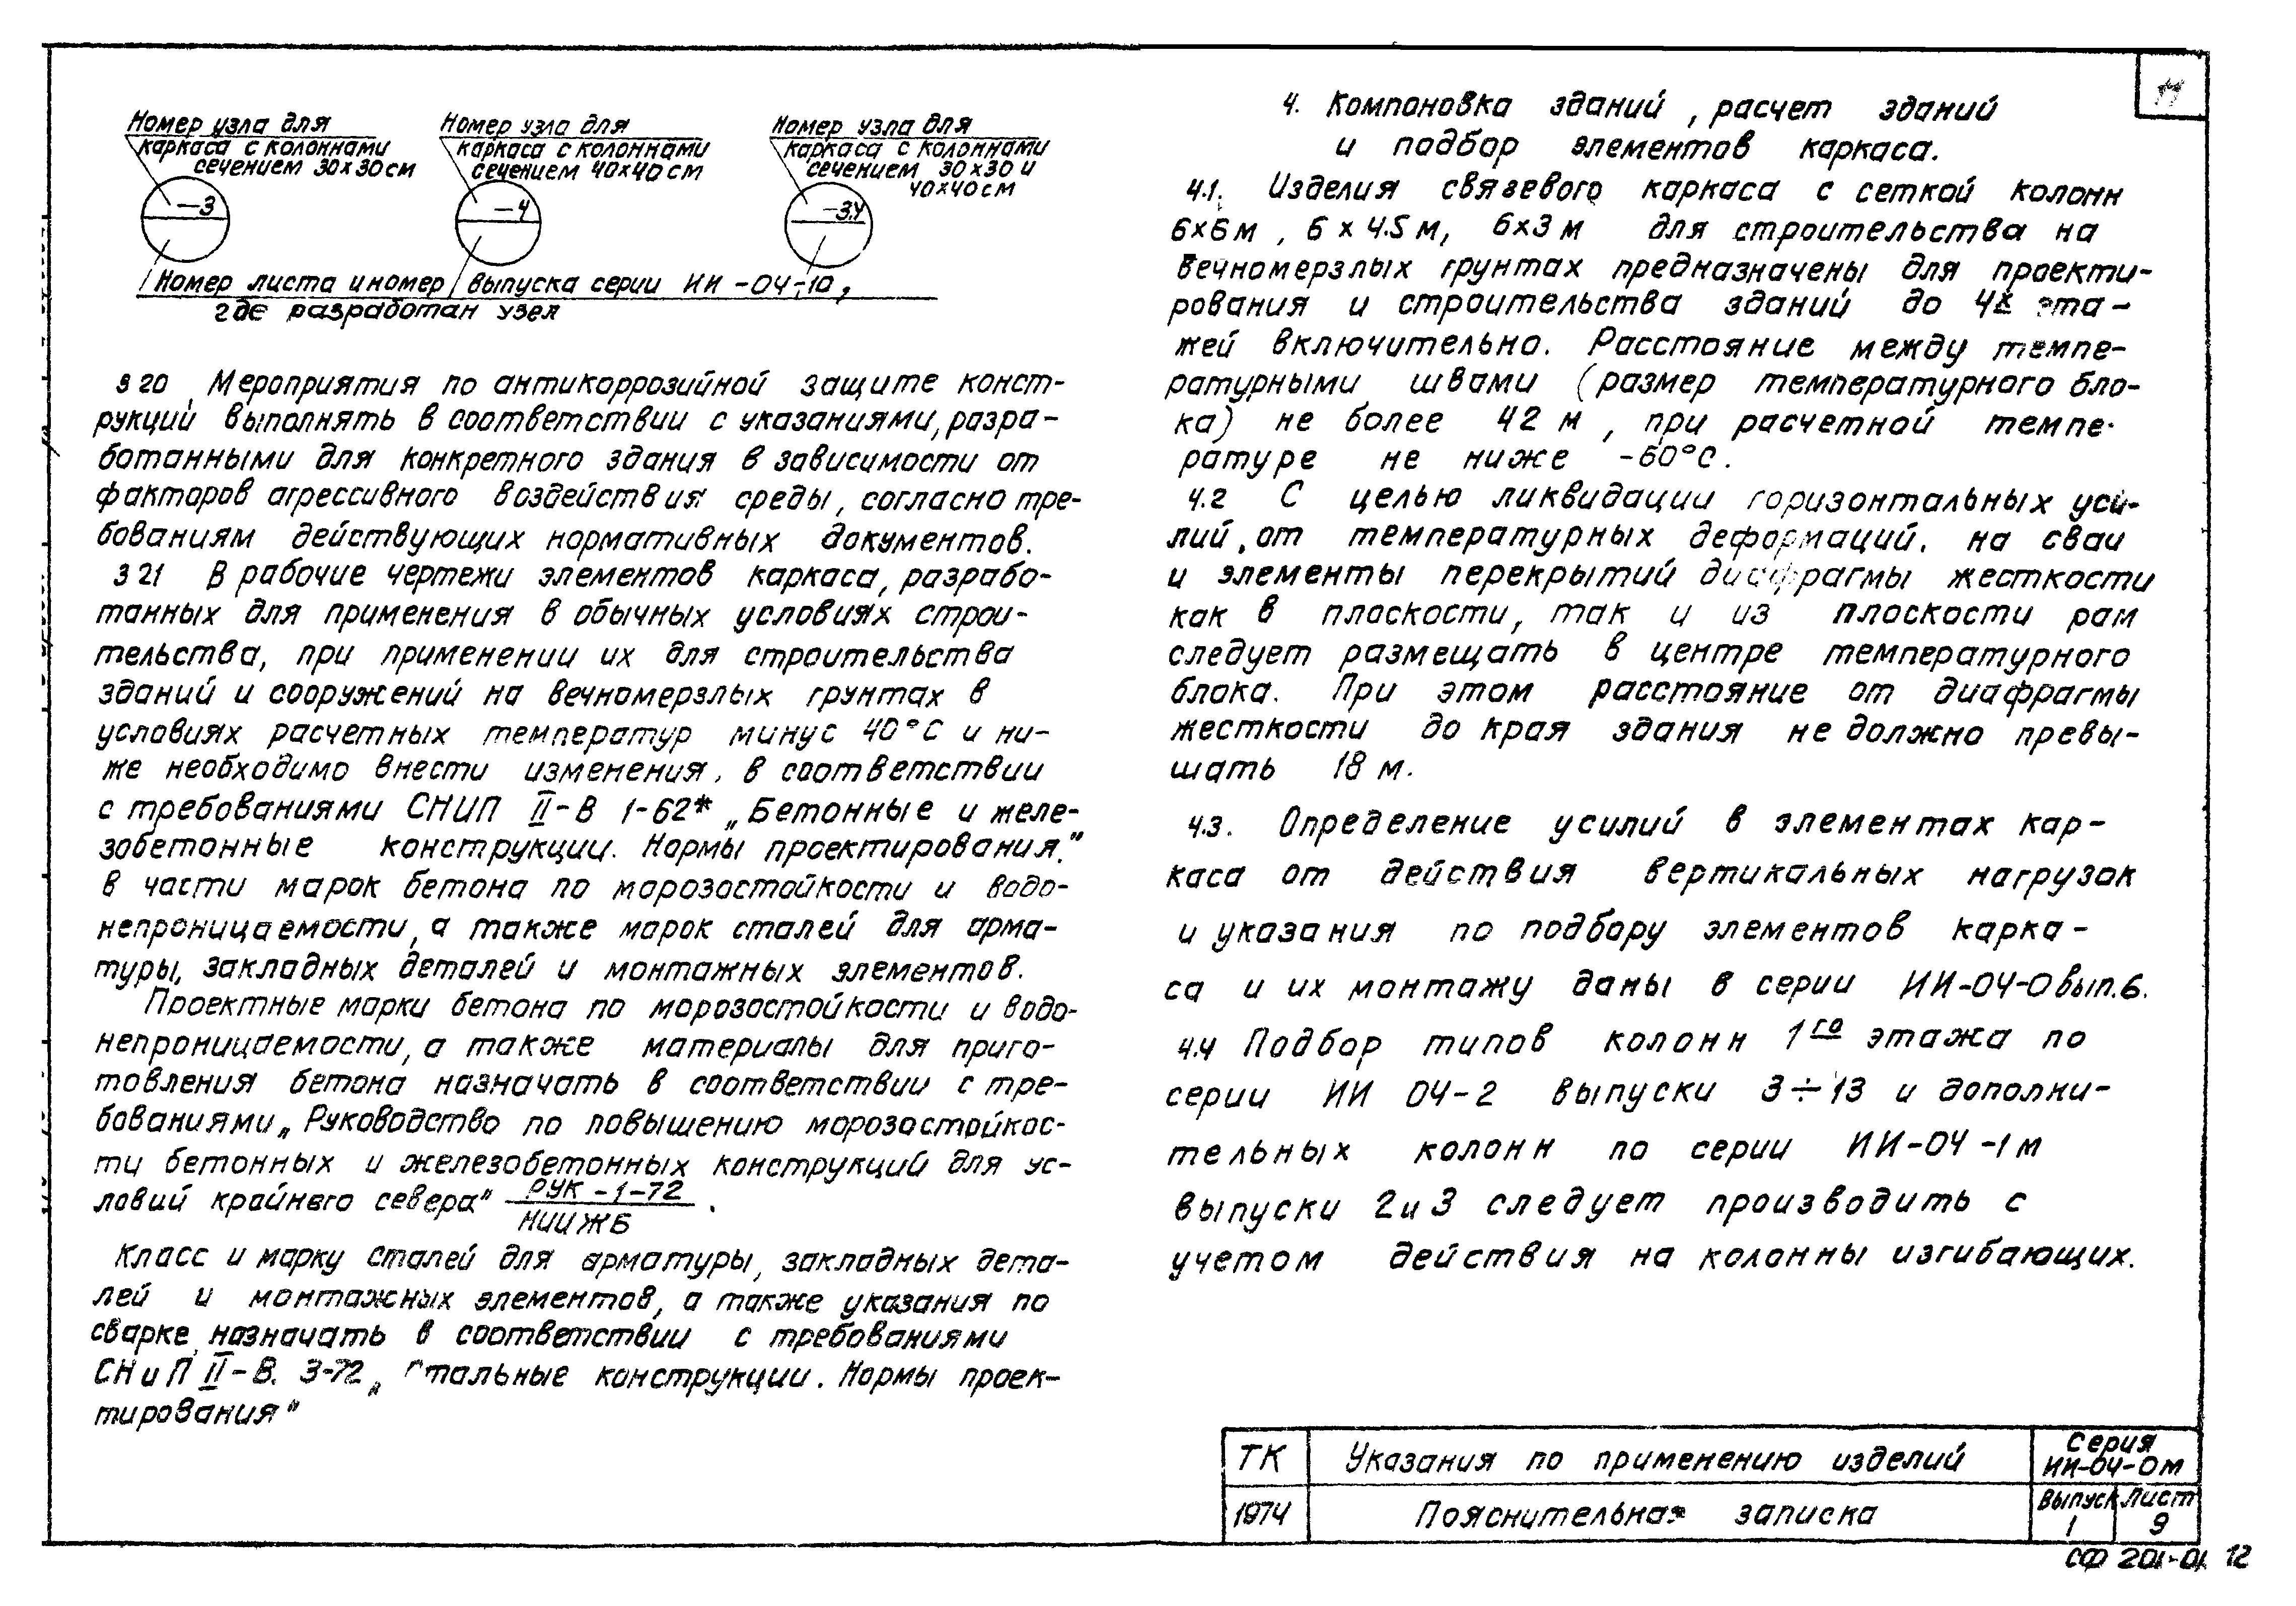 Номер узла для
каркаса с колоннами
сечением 30х30 см
—3
Номер узла для
каркаса с колоннами
сечением 40х40 см
—4
Номер узла для
каркаса с колоннами
сечением 30х30 и
40х40 см
—3,4
Номер листа и номер выпуска серии ИИ-04-10,
где разработан узел
3 20 Мероприятия по антикоррозийной защите конст-
рукций выполнять в соответствии с указаниями, разра-
ботанными для конкретного здания в зависимости от
факторов агрессивного воздействия среды, согласно тре-
бованиям действующих нормативных документов.
3 21 В рабочие чертежи элементов каркаса, разрабо-
танных для применения в обычных условиях строи-
тельства, при применении их для строительства
зданий и сооружений на вечномерзлых грунтах в
условиях расчетных температур минус 40°С и ни-
же необходимо внести изменения, в соответствии
с требованиями СНИП II-В 1-62* „Бетонные и желе-
зобетонные конструкции. Нормы проектирования."
в части марок бетона по морозостойкости и водо-
непроницаемости, а также марок сталей для арма-
туры, закладных деталей и монтажных элементов.
Проектные марки бетона по морозостойкости и водо-
непроницаемости, а также материалы для приго-
товления бетона назначать в соответствии с тре-
бованиями „Руководство по повышению морозостойкос-
ти бетонных и железобетонных конструкций для ус-
ловий крайнего севера" РУК-1-72
НИИЖБ .
Класс и марку сталей для арматуры, закладных дета-
лей и монтажных элементов, а также указания по
сварке назначать в соответствии с требованиями
СНиП II-В. 3-72 „Стальные конструкции. Нормы проек-
тирования"
4. Компоновка зданий, расчет зданий
и подбор элементов каркаса.
4.1. Изделия связевого каркаса с сеткой колонн
6х6м, 6х4.5м, 6х3м для строительства на
вечномерзлых грунтах предназначены для проекти-
рования и строительства зданий до 4х эта-
жей включительно. Расстояние между темпе-
ратурными швами (размер температурного бло-
ка) не более 42 м, при расчетной темпе-
ратуре не ниже -60°С.
4.2 С целью ликвидации горизонтальных уси-
лий, от температурных деформаций, на сваи
и элементы перекрытий диафрагмы жесткости
как в плоскости, так и из плоскости рам
следует размещать в центре температурного
блока. При этом расстояние от диафрагмы
жесткости до края здания не должно превы-
шать 18 м.
4.3. Определение усилий в элементах кар-
каса от действия вертикальных нагрузок
и указания по подбору элементов карка-
са и их монтажу даны в серии ИИ-04-0 вып.6.
4.4 Подбор типов колонн 1го этажа по
серии ИИ 04-2 выпуски 3÷13 и дополни-
тельных колонн по серии ИИ-04-1м
выпуски 2 и 3 следует производить с
учетом действия на колонны изгибающих.
ТК
Указания по применению изделий
Серия
ИИ-04-0м
1974
Пояснительная записка
Выпуск
1
Лист
9
СФ 201-01 12